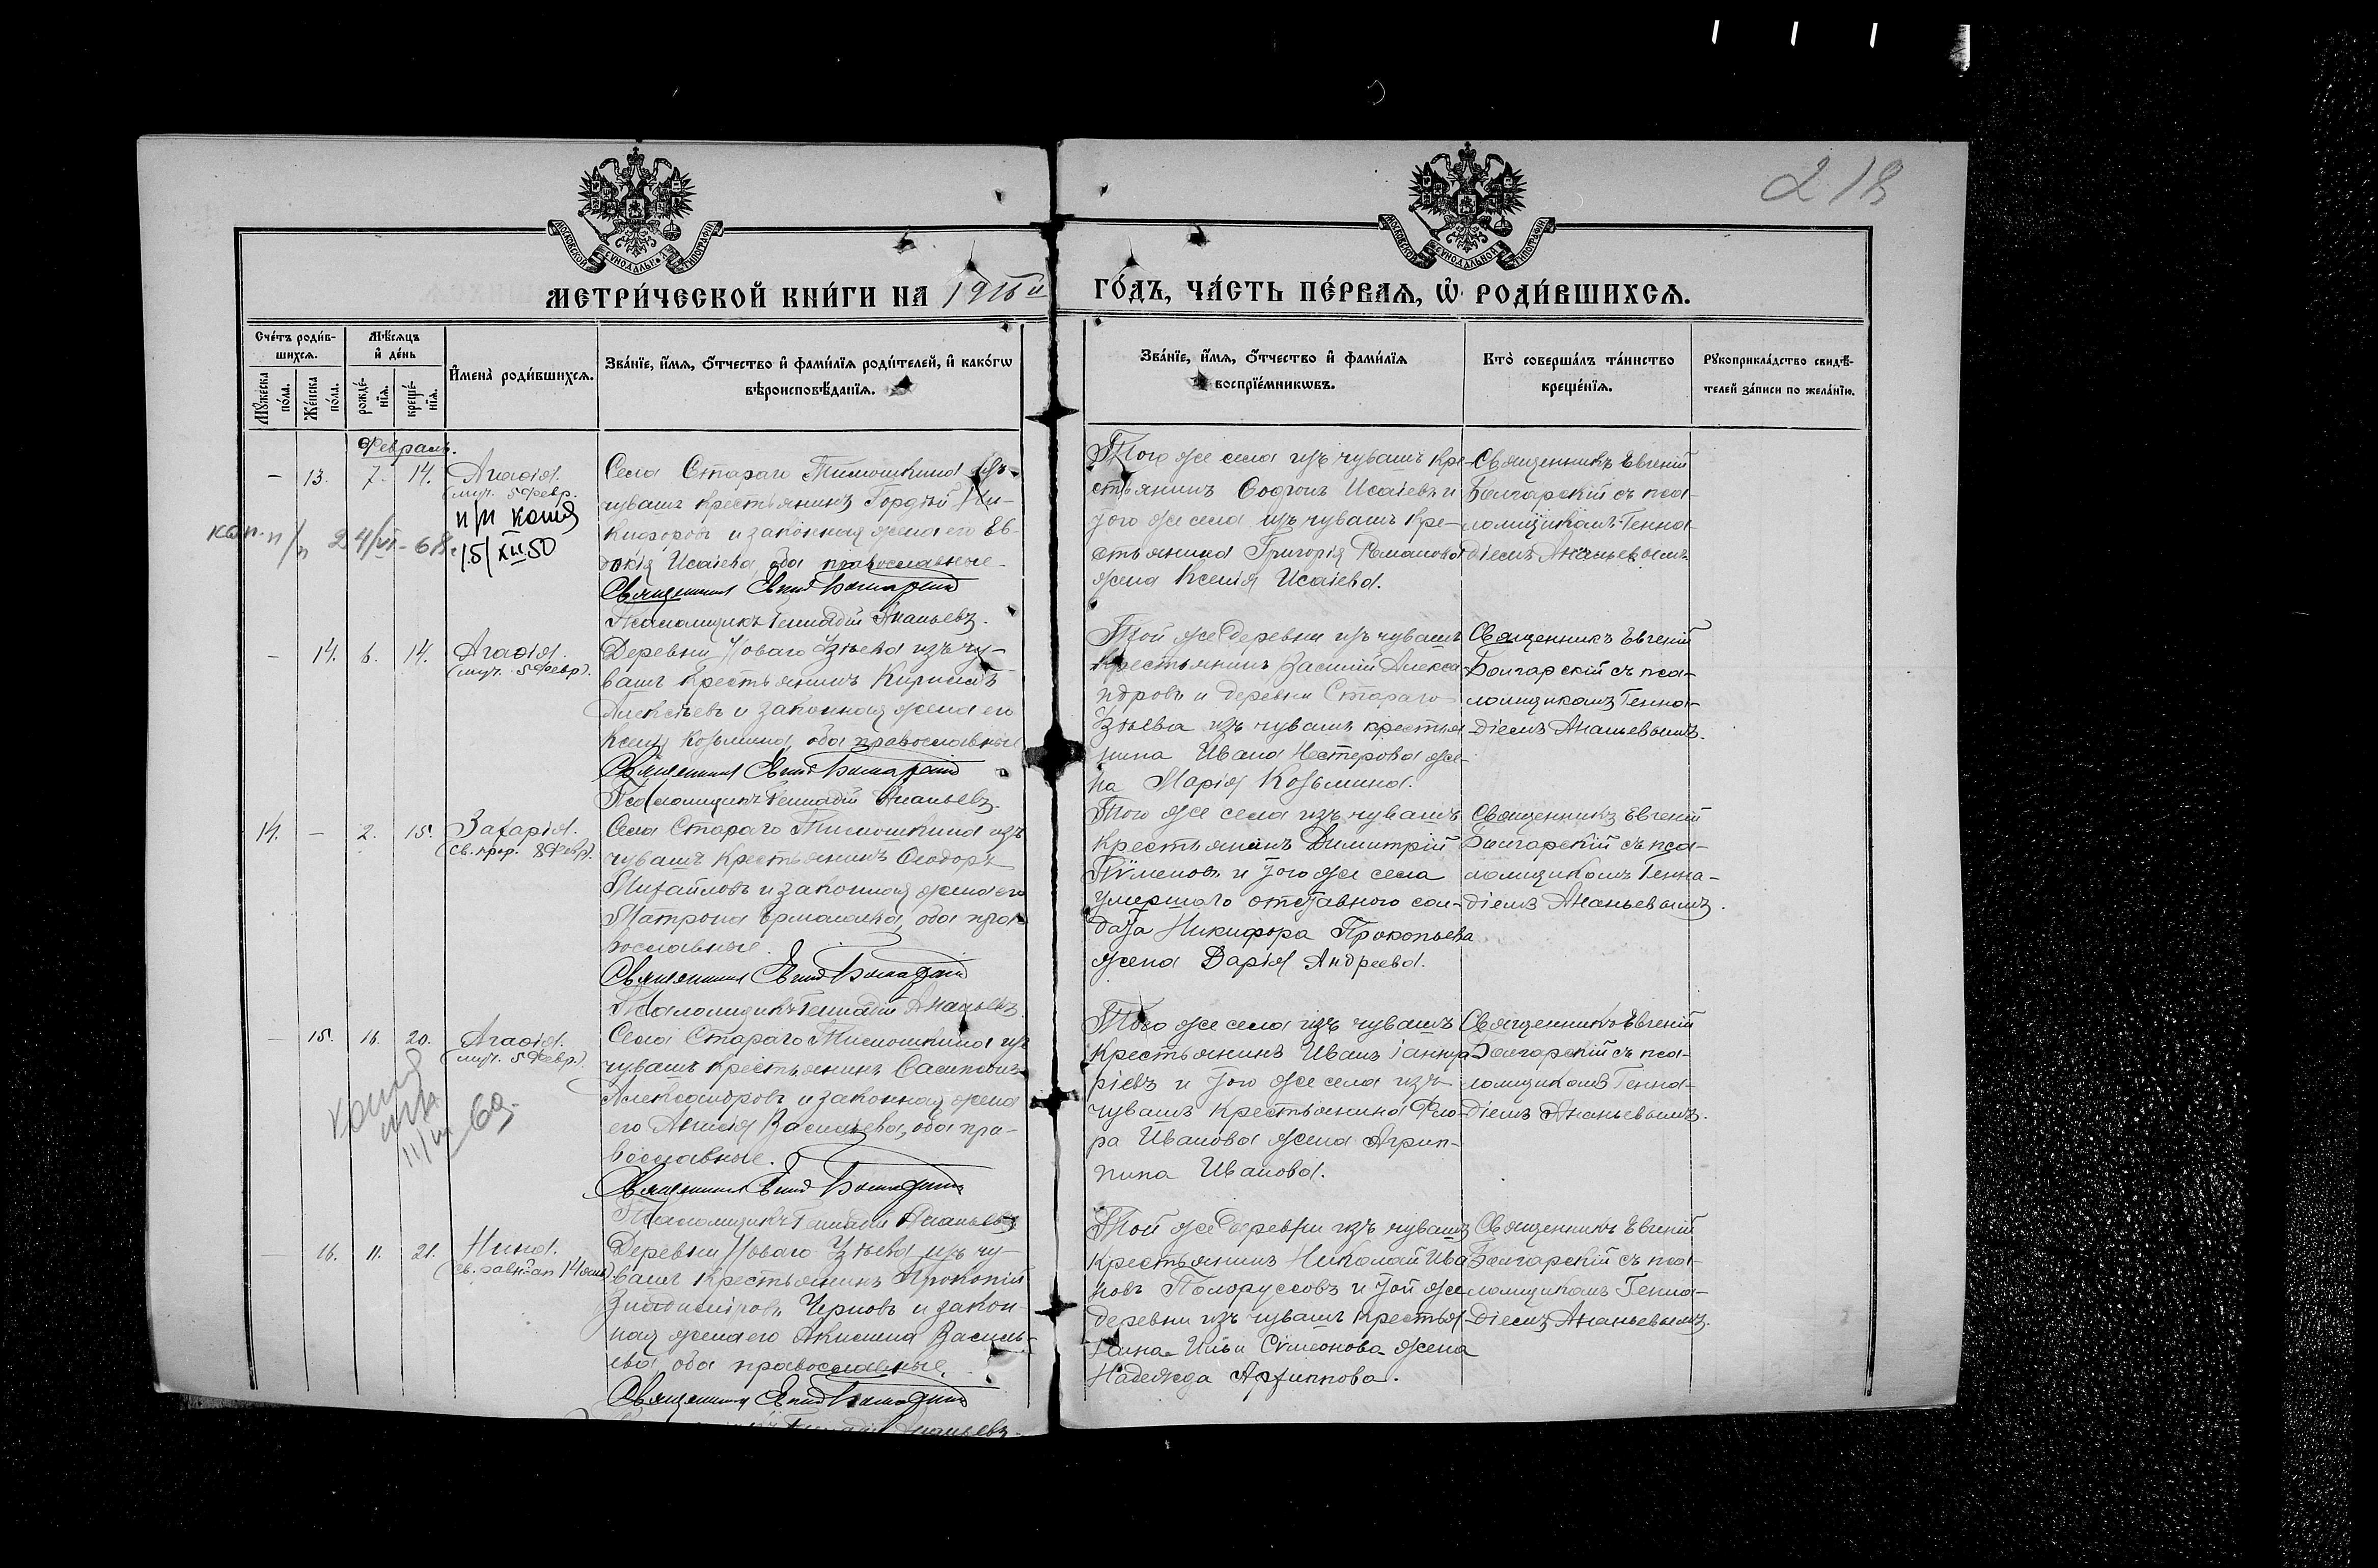 218
МОСКОВСКОЙ СѴНОДАЛЬНОЙ ТИПОГРАФІИ
МОСКОВСКОЙ СѴНОДАЛЬНОЙ ТИПОГРАФІИ
МЕТРИ́ЧЕСКОЙ КНИ́ГИ НА 1916й ГО́ДЪ, ЧА́СТЬ ПЕ́РВАѦ, Ѡ РОДИ́ВШИХСѦ.
Сче́тъ роди́в-
шихсѧ.
Мꙋ́жеска
по́ла.
Же́нска
по́ла.
Мѣ́сѧцъ
и҆ де́нь
рожде́-
нїѧ.
креще́-
нїѧ.
И҆мена̀ роди́вшихсѧ.
Зва́нїе, и҆́мѧ, ѻ҆́тчество и҆ фами́лїѧ роди́телей, и҆ како́гѡ
вѣроисповѣ́данїѧ.
Зва́нїе, и҆́мѧ, ѻ҆́тчество и҆ фами́лїѧ
воспрїе́мникѡвъ.
Кто̀ соверша́лъ та́инство
креще́нїѧ.
Рꙋкоприкла́дство свидѣ́-
телей за́писи по жела́нїю.
Февраль.
– 13. 7. 14. Агаѳія.
(муч. 5 Февр.
п/п копія
15/XII 50
п/п 24/VI-68.
Села Стараго Тимошкина изъ
чувашъ крестьянинъ Гордѣй Ни-
кифоровъ и законная жена его Ев-
докія Исаіева, оба православные.
Священникъ Евгеній Болгарскій
Псаломщикъ Геннадій Ананьевъ.
Того же села изъ чувашъ кре-
стьянинъ Исаіевъ и
того же села изъ чувашъ кре-
стьянина Григорія Романова
жена Ксенія Исаіева.
Священникъ Евгеній
Болгарскій съ пса-
ломщикомъ Генна-
діемъ Ананьевымъ.
– 14. 6. 14. Агаѳія.
(муч. 5 Февр).
Деревни Новаго Узѣева изъ чу-
вашъ крестьянинъ Кириллъ
Алексѣевъ и законная жена его
Ксенія Козьмина, оба православные
Священникъ Евгеній Болгарскій
Псаломщикъ Геннадій Ананьевъ.
Той же деревни изъ чувашъ
крестьянинъ Василій Алекса-
ндровъ и деревни Стараго
Узѣева изъ чувашъ крестья-
нина Ивана Нестерова же-
на Марія Козьмина.
Священникъ Евгеній
Болгарскій съ пса-
ломщикомъ Генна-
діемъ Ананьевымъ.
14. – 2. 15. Захарія.
(св. прор. 8 Февр).
Села Стараго Тимошкина изъ
чувашъ крестьянинъ Ѳеодоръ
Михайловъ и законная жена его
Матрона Ермолаева, оба пра-
вославные.
Священникъ Евгеній Болгарскій
Псаломщикъ Геннадій Ананьевъ
Того же села изъ чувашъ
крестьянинъ Димитрій
Пѵменовъ и того же села
умершаго отставного сол-
дата Никифора Прокопьева
жена Дарія Андреева.
Священникъ Евгеній
Болгарскій съ пса-
ломщикомъ Генна-
діемъ Ананьевымъ.
– 15. 16. 20. Агаѳія.
(муч. 5 Февр).
копія
69
Села Стараго Тимошкина изъ
чувашъ крестьянинъ
Александровъ и законная жена
его Анисія Васильева, оба пра-
вославные.
Священникъ Евгеній Болгарскій
Псаломщикъ Геннадій Ананьевъ
Того же села изъ чувашъ
крестьянинъ Иванъ Іаннуа-
ріевъ и того же села изъ
чувашъ крестьянина Фло-
ра Иванова жена Агрип-
пина Иванова.
Священникъ Евгеній
Болгарскій съ пса-
ломщикомъ Генна-
діемъ Ананьевымъ.
– 16. 11. 21. Нина.
(св. равноап 14 янв)
Деревни Новаго Узѣева изъ чу-
вашъ крестьянинъ Прокопій
Владиміровъ Черновъ и закон-
ная жена его Акилина Василь-
ева, оба православные.
Священникъ Евгеній Болгарскій
Ананьевъ.
Той же деревни изъ чувашъ
крестьянинъ Николай Ива-
новъ Полоруссовъ и той же
деревни изъ чувашъ крестья-
нина Ильи Сѵмеонова жена
Надежда Архиппова.
Священникъ Евгеній
Болгарскій съ пса-
ломщикомъ Генна-
діемъ Ананьевымъ.